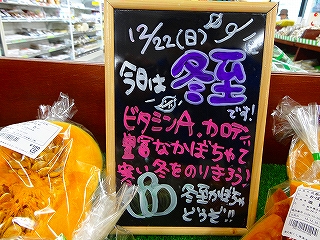 12/22(日)
今日は
冬至
です!
ビタミンA、カロテン
豊富なかぼちゃで
寒い冬をのりきろう!
冬至かぼちゃ
どうぞ!!